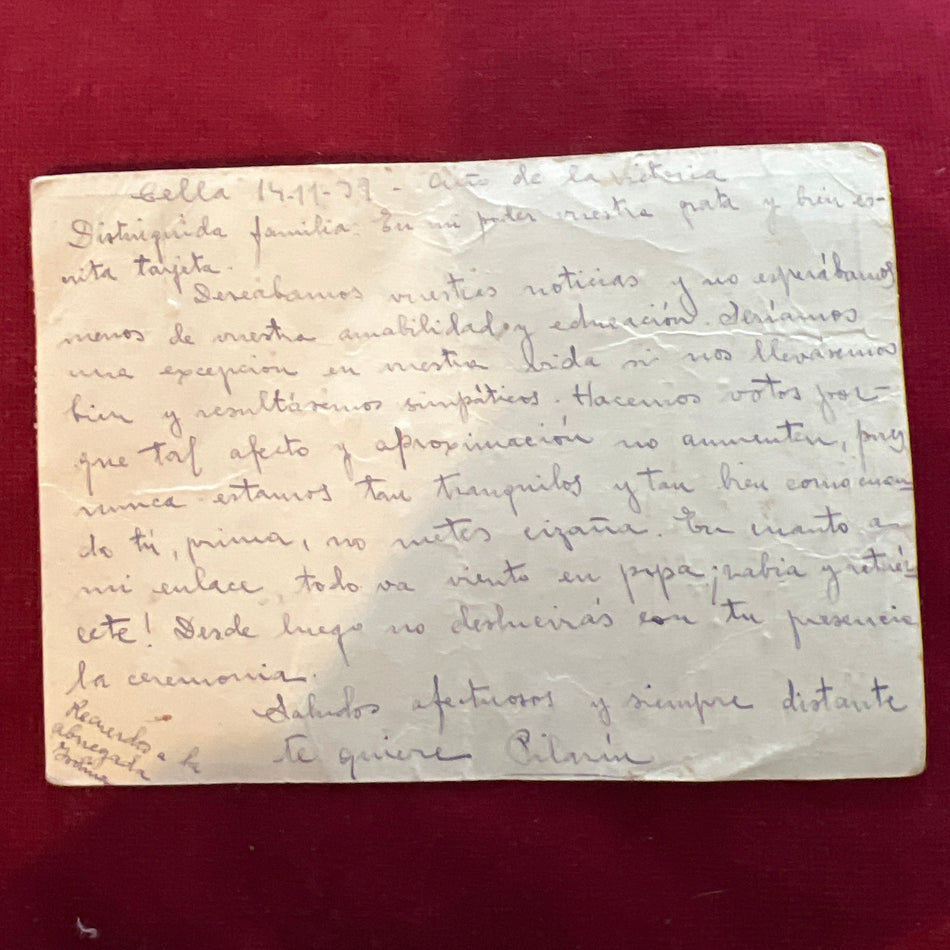 Cella 14-11-39 - Año de la Victoria
Distinguida familia: En mi poder vuestra grata y bien es-
crita tarjeta.
Deseábamos vuestras noticias y no esperábamos
menos de vuestra amabilidad y educación. Seríamos
una excepción en vuestra vida si nos lleváramos
bien y resultásemos simpáticos. Hacemos votos por-
que tal afecto y aproximación no aumenten, pues
nunca estamos tan tranquilos y tan bien como cuan-
do tú, prima, no metes cizaña. En cuanto a
mi enlace, todo va viento en popa ¡rabia y retuér-
cete! Desde luego no deslucirás con tu presencia
la ceremonia.
Saludos afectuosos y siempre distante
te quiere Pilarín
Recuerdos a la
abnegada